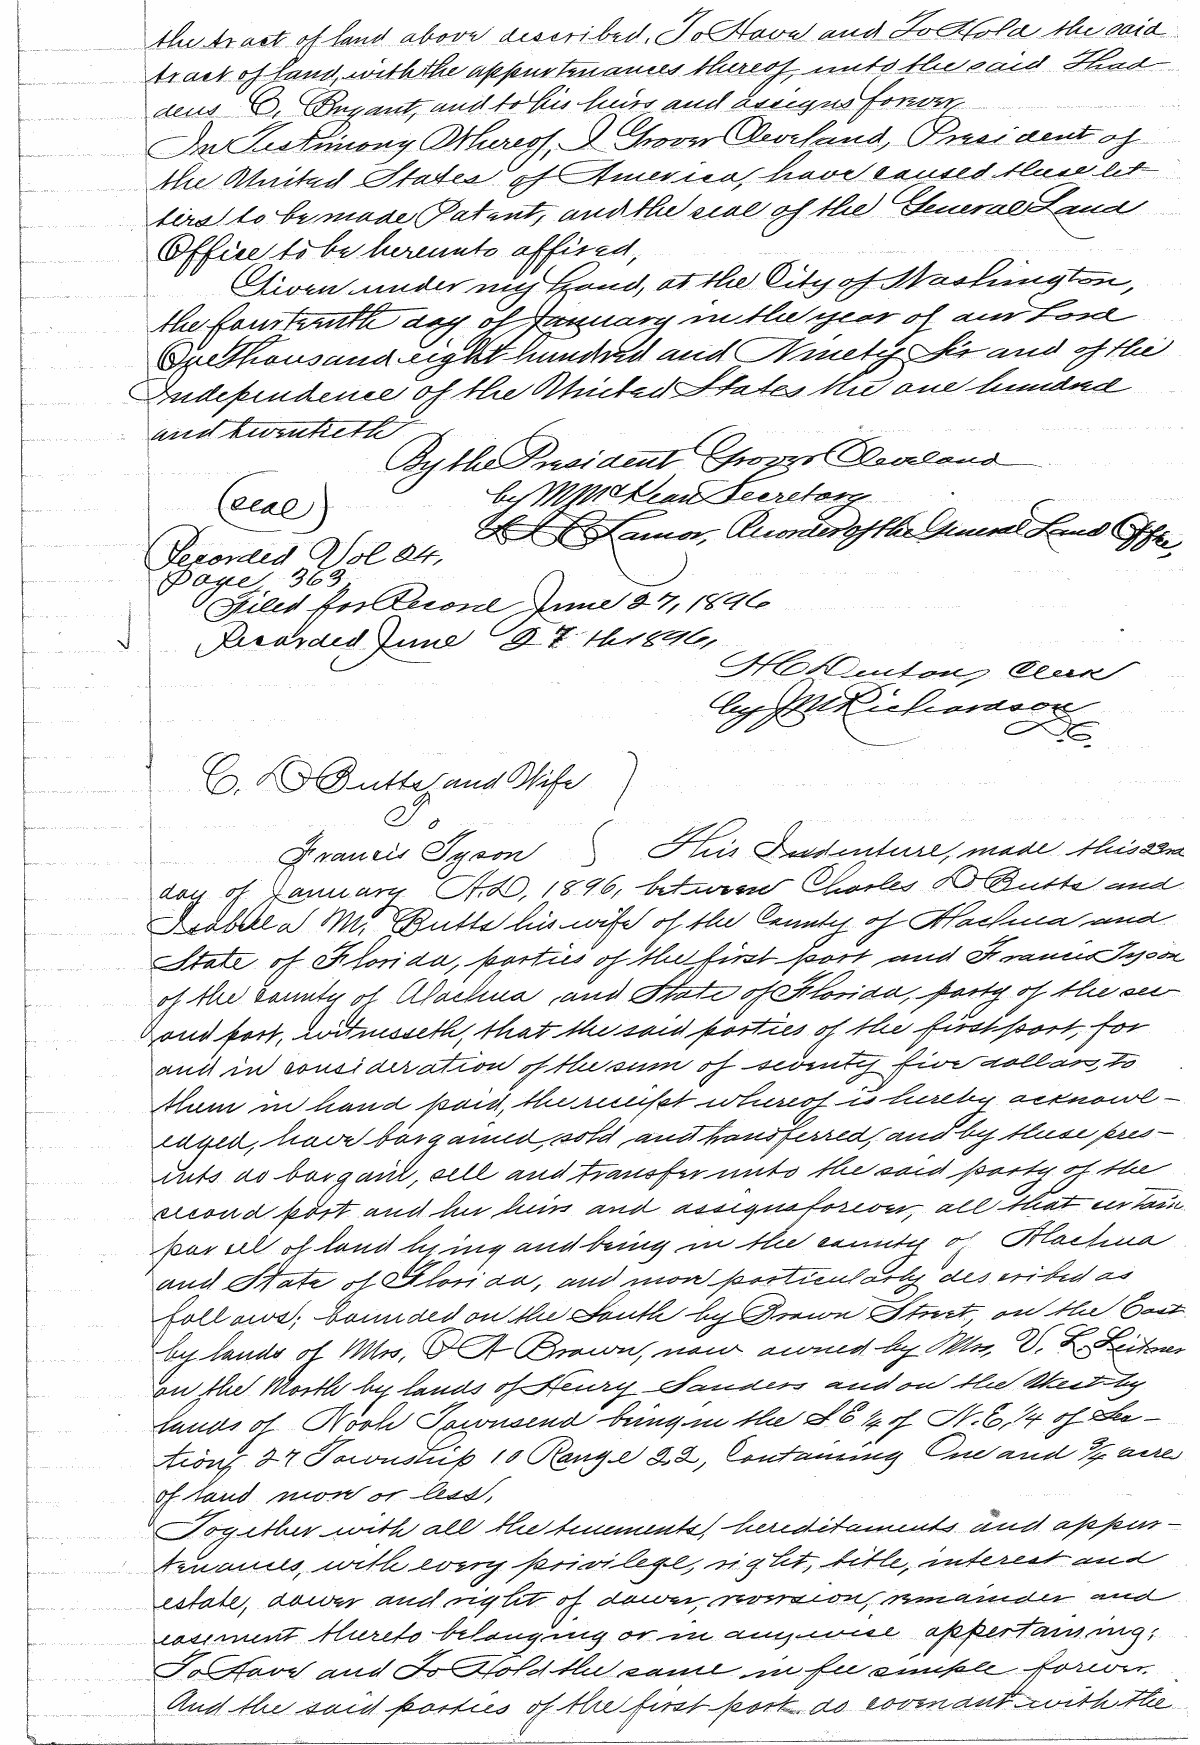 the tract of land above described. To Have and To Hold the said
tract of land, with the appurtenances thereof, unto the said Thad
deus C. Bryant, and to his heirs and assigns forever,
In Testimony Whereof, I Grover Cleveland, President of
the United States of America, have caused these let
ters to be made Patent, and the seal of the General Land
Office to be hereunto affixed,
Given under my hand, at the City of Washington,
the fourteenth day of January in the year of our Lord
One thousand eight hundred and Ninety Six and of the
Independence of the United States the one hundred
and twentieth
By the President Grover Cleveland
by M McKean Secretary
(seal)
L Q C Lamar, Recorder of the General Land Office,
Recorded Vol 24,
Page 363,
Filed for Record June 27, 1896
Recorded June 27th 1896,
H C Denton, Clerk
by J M Richardson
D C.
C. D Butts, and Wife )
To
Francis Tyson } This Indenture, made this 22nd
day of January A.D, 1896, between Charles D Butts and
Isabella M. Butts his wife of the County of Alachua and
State of Florida, parties of the first part and Francis Tyson
of the County of Alachua and State of Florida, party of the sec
ond part, witnesseth, that the said parties of the first part, for
and in consideration of the sum of seventy five dollars, to
them in hand paid, the receipt whereof is hereby acknowl-
edged, have bargained, sold and transferred, and by these pres-
ents do bargain, sell and transfer unto the said party of the
second part and her heirs and assigns forever, all that certain
parcel of land lying and being in the county of Alachua
and State of Florida, and more particularly described as
follows; bounded on the South by Brown Street, on the East
by lands of Mrs. A Brown, now owned by Mrs, V. L.
on the North by lands of Henry Sanders and on the West by
lands of Noah Townsend being in the S E 1/4 of N. E, 1/4 of Sec-
tion, 27 Township 10 Range 22, Containing One and 3/4 acres
of land more or less.
Together with all the tenements, hereditaments and appur-
tenances, with every privilege, right, title, interest and
estate, dower and right of dower, reversion, remainder and
easement thereto belonging or in anywise appertaining:
To Have and To Hold the same in fee simple forever.
And the said parties of the first part do covenant with the